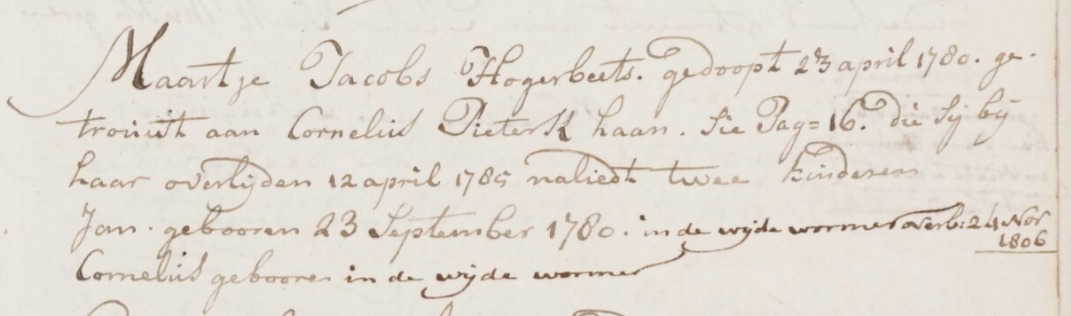 Maartje Jacobs Hogerbeets. gedoopt 23 april 1780. ge-
trouwt aan Cornelius Pietersz haan. Sie Pag= 16. die Sij bij
haar overlijden 12 april 1785 naliedt twee kinderen
Jan. gebooren 23 September 1780. in de wijde wormer overl: 24 Nov
1806
Cornelius gebooren in de wijde wormer